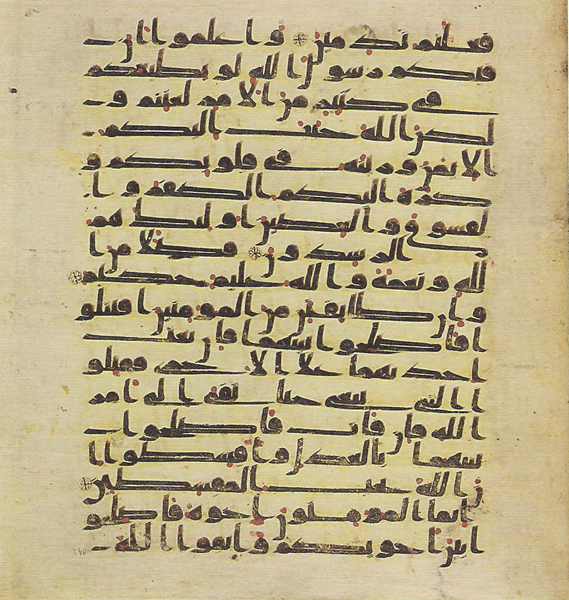 فعلتم ندمين واعلموا ان
فيكم رسول الله لو يطيعكم
في كثير من الامر لعنتم و
لكن الله حبب اليكم
الايمن وزينه في قلوبكم و
كره اليكم الكفر وا
لفسوق والعصين اوليك هم
الرشدون فضلا من ا
لله ونعمة والله عليم حكيم
وان طايفتن من المومنين اقتتلو
ا فاصلحوا بينهما فان بغت
احديهما على الاخرى فقتلو
ا التي تبغي حتى تفي الى امر
الله فان فات فاصلحوا
بينهما بالعدل واقسطوا ا
ن الله يحب المقسطين
انما المومنون اخوة فاصلحو
ا بين اخويكم واتقوا الله